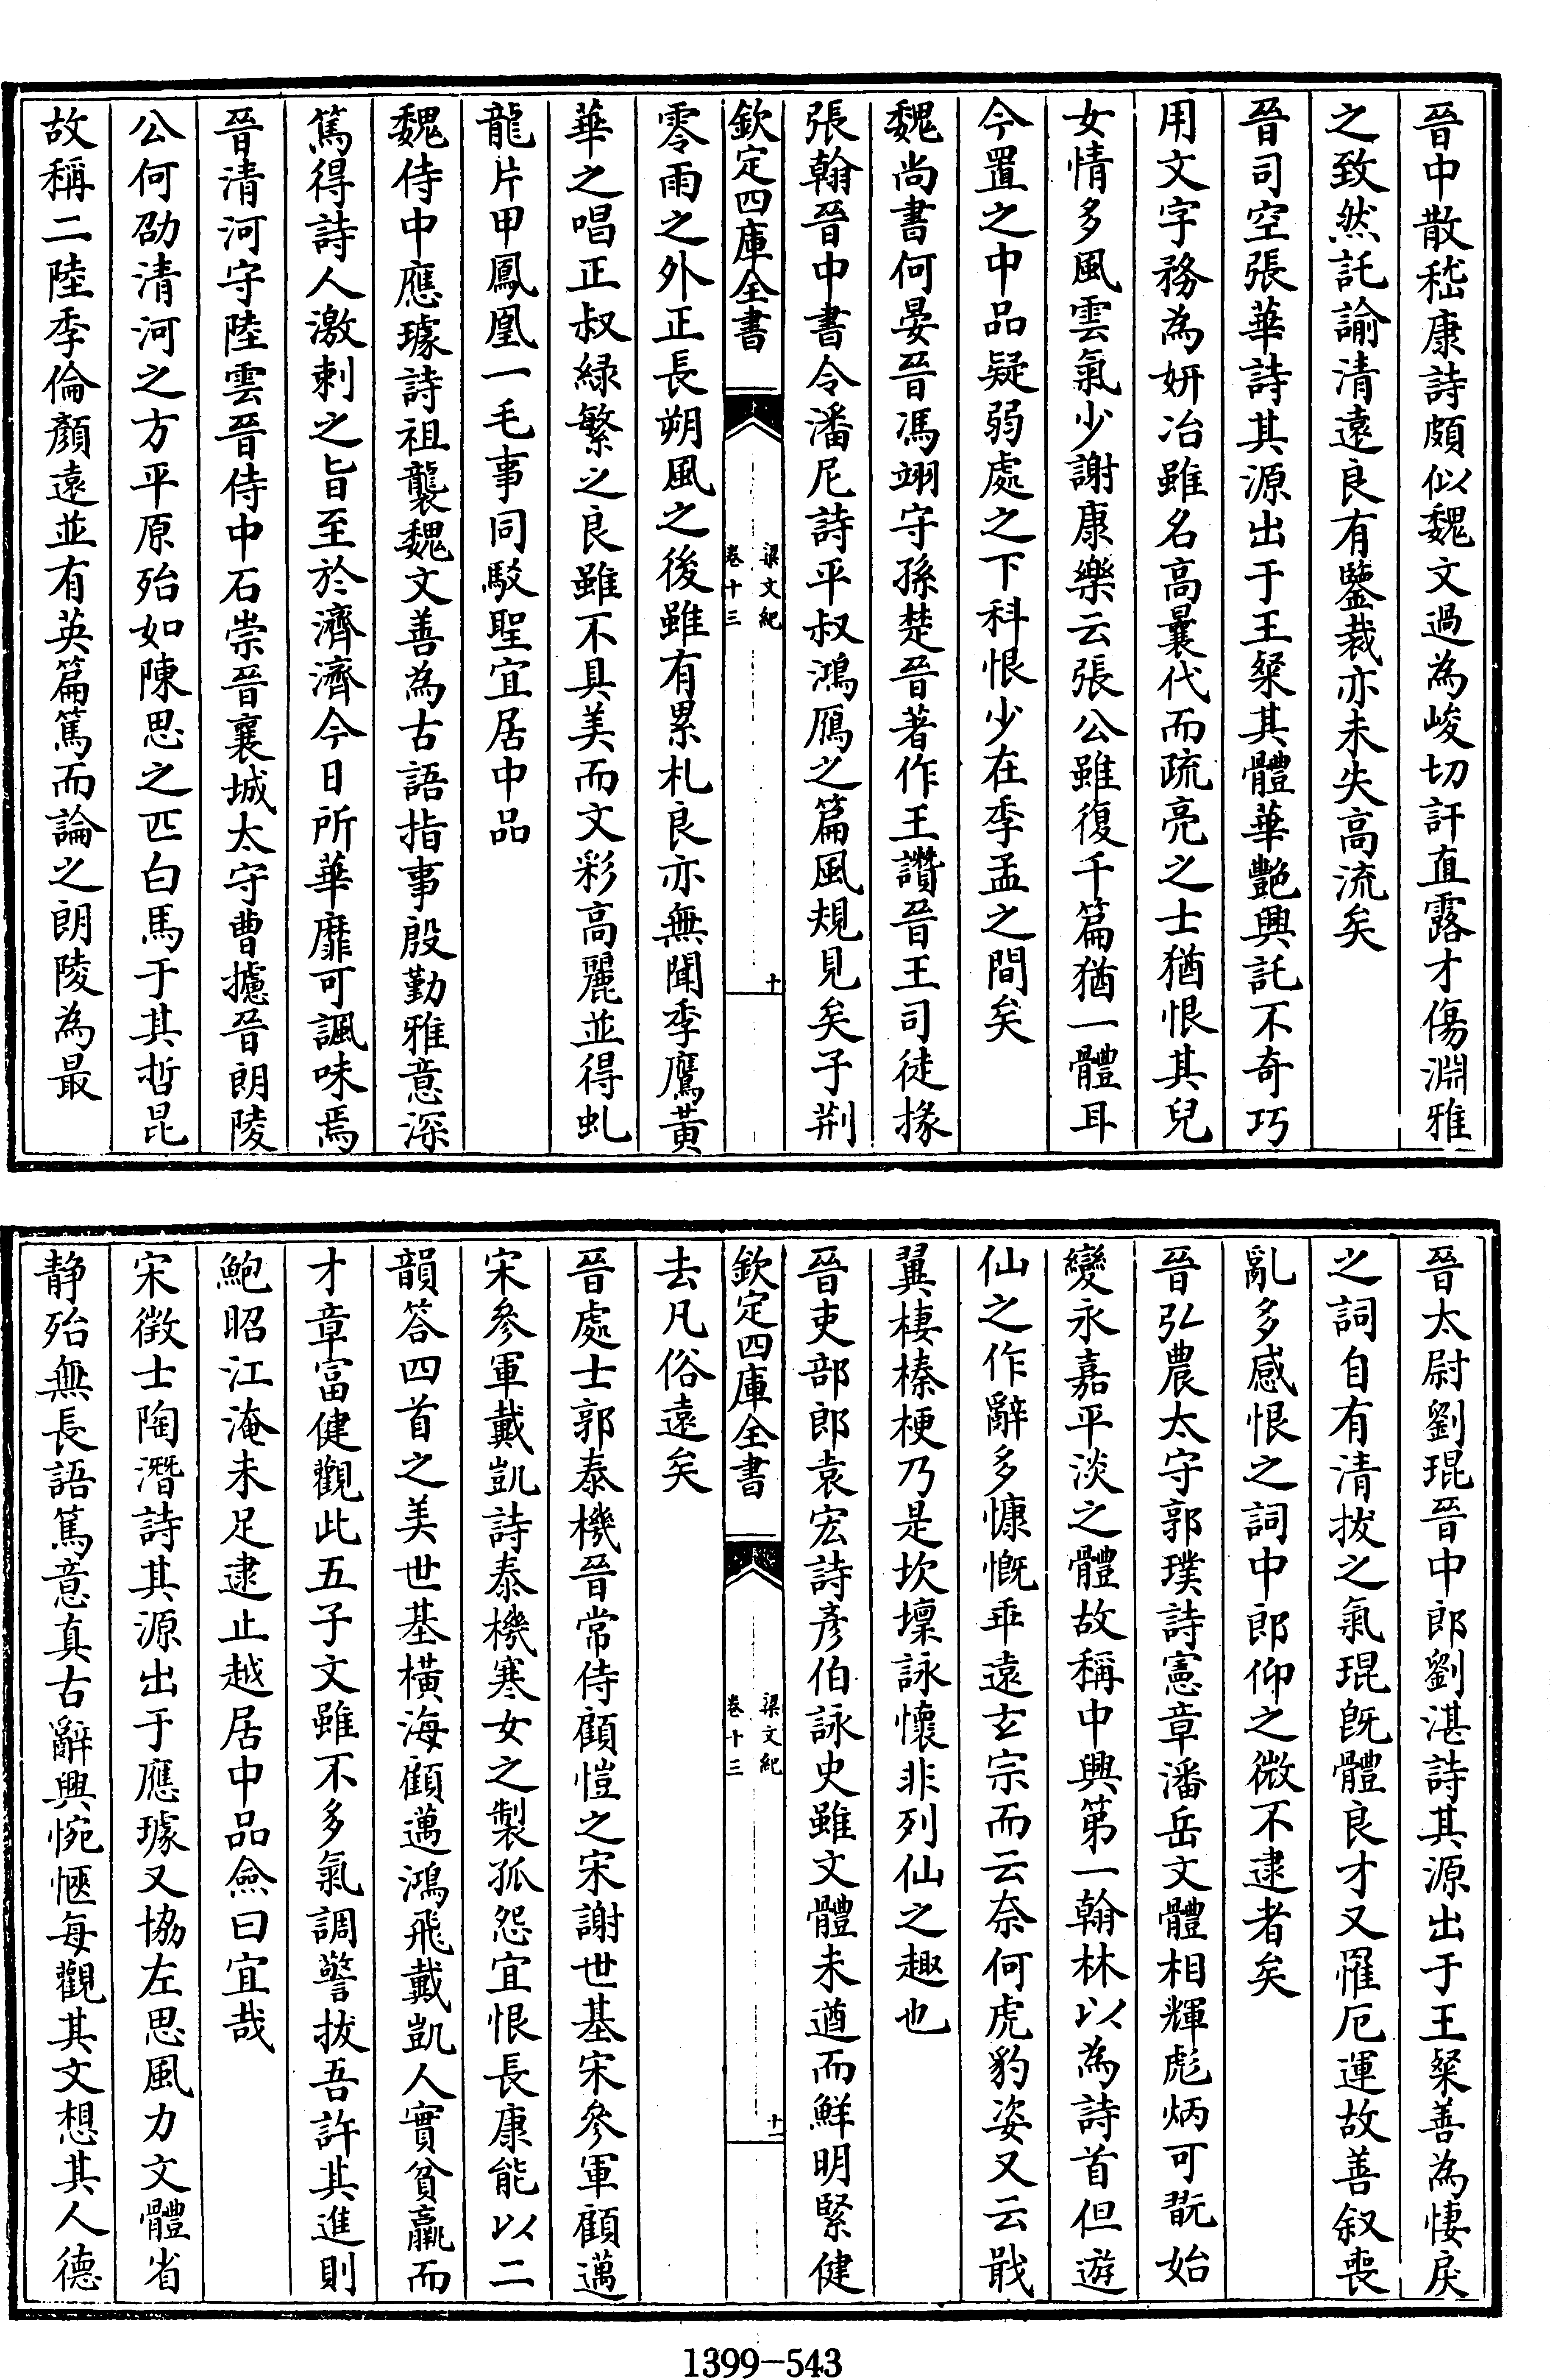 晉中散嵇康詩頗似魏文過為峻切訐直露才傷淵雅
之致然託諭清遠良有鑒裁亦未失高流矣
晉司空張華詩其源出于王粲其體華艶興託不奇巧
用文字務為妍冶雖名高曩代而疏亮之士猶恨其兒
女情多風雲氣少謝康樂云張公雖復千篇猶一體耳
今置之中品疑弱處之下科恨少在季孟之間矣
魏尚書何晏晉馮翊守孫楚晉著作王讚晉王司徒掾
張翰晉中書令潘尼詩平叔鴻鴈之篇風規見矣子荆
欽定四庫全書
梁文紀
卷十三
十
零雨之外正長朔風之後雖有累札良亦無聞季鷹黃
華之唱正叔緑繁之良雖不具美而文彩高麗並得虬
龍片甲鳳凰一毛事同駁聖宜居中品
魏侍中應璩詩祖襲魏文善為古語指事殷勤雅意深
篤得詩人激刺之旨至於濟濟今日所華靡可諷味焉
晉清河守陸雲晉侍中石崇晉襄城太守曹攄晉朗陵
公何劭清河之方平原殆如陳思之匹白馬于其哲昆
故稱二陸季倫顏遠並有英篇篤而論之朗陵為最
晉太尉劉琨晉中郎劉湛詩其源出于王粲善為悽戾
之詞自有清拔之氣琨既體良才又罹厄運故善叙喪
亂多感恨之詞中郎仰之微不逮者矣
晉弘農太守郭璞詩憲章潘岳文體相輝彪炳可翫始
變永嘉平淡之體故稱中興第一翰林以為詩首但遊
仙之作辭多慷慨乖遠玄宗而云奈何虎豹姿又云戢
翼棲榛梗乃是坎壈詠懷非列仙之趣也
晉吏部郎袁宏詩彥伯詠史雖文體未遒而鮮明緊健
欽定四庫全書
梁文紀
卷十三
十一
去凡俗遠矣
晉處士郭泰機晉常侍顧愷之宋謝世基宋參軍顧邁
宋參軍戴凱詩泰機寒女之製孤怨宜恨長康能以二
韻答四首之美世基橫海顧邁鴻飛戴凱人實貧羸而
才章富健觀此五子文雖不多氣調警拔吾許其進則
鮑昭江淹未足逮止越居中品僉曰宜哉
宋徵士陶潛詩其源出于應璩又協左思風力文體省
静殆無長語篤意真古辭興惋愜每觀其文想其人德
1399-543